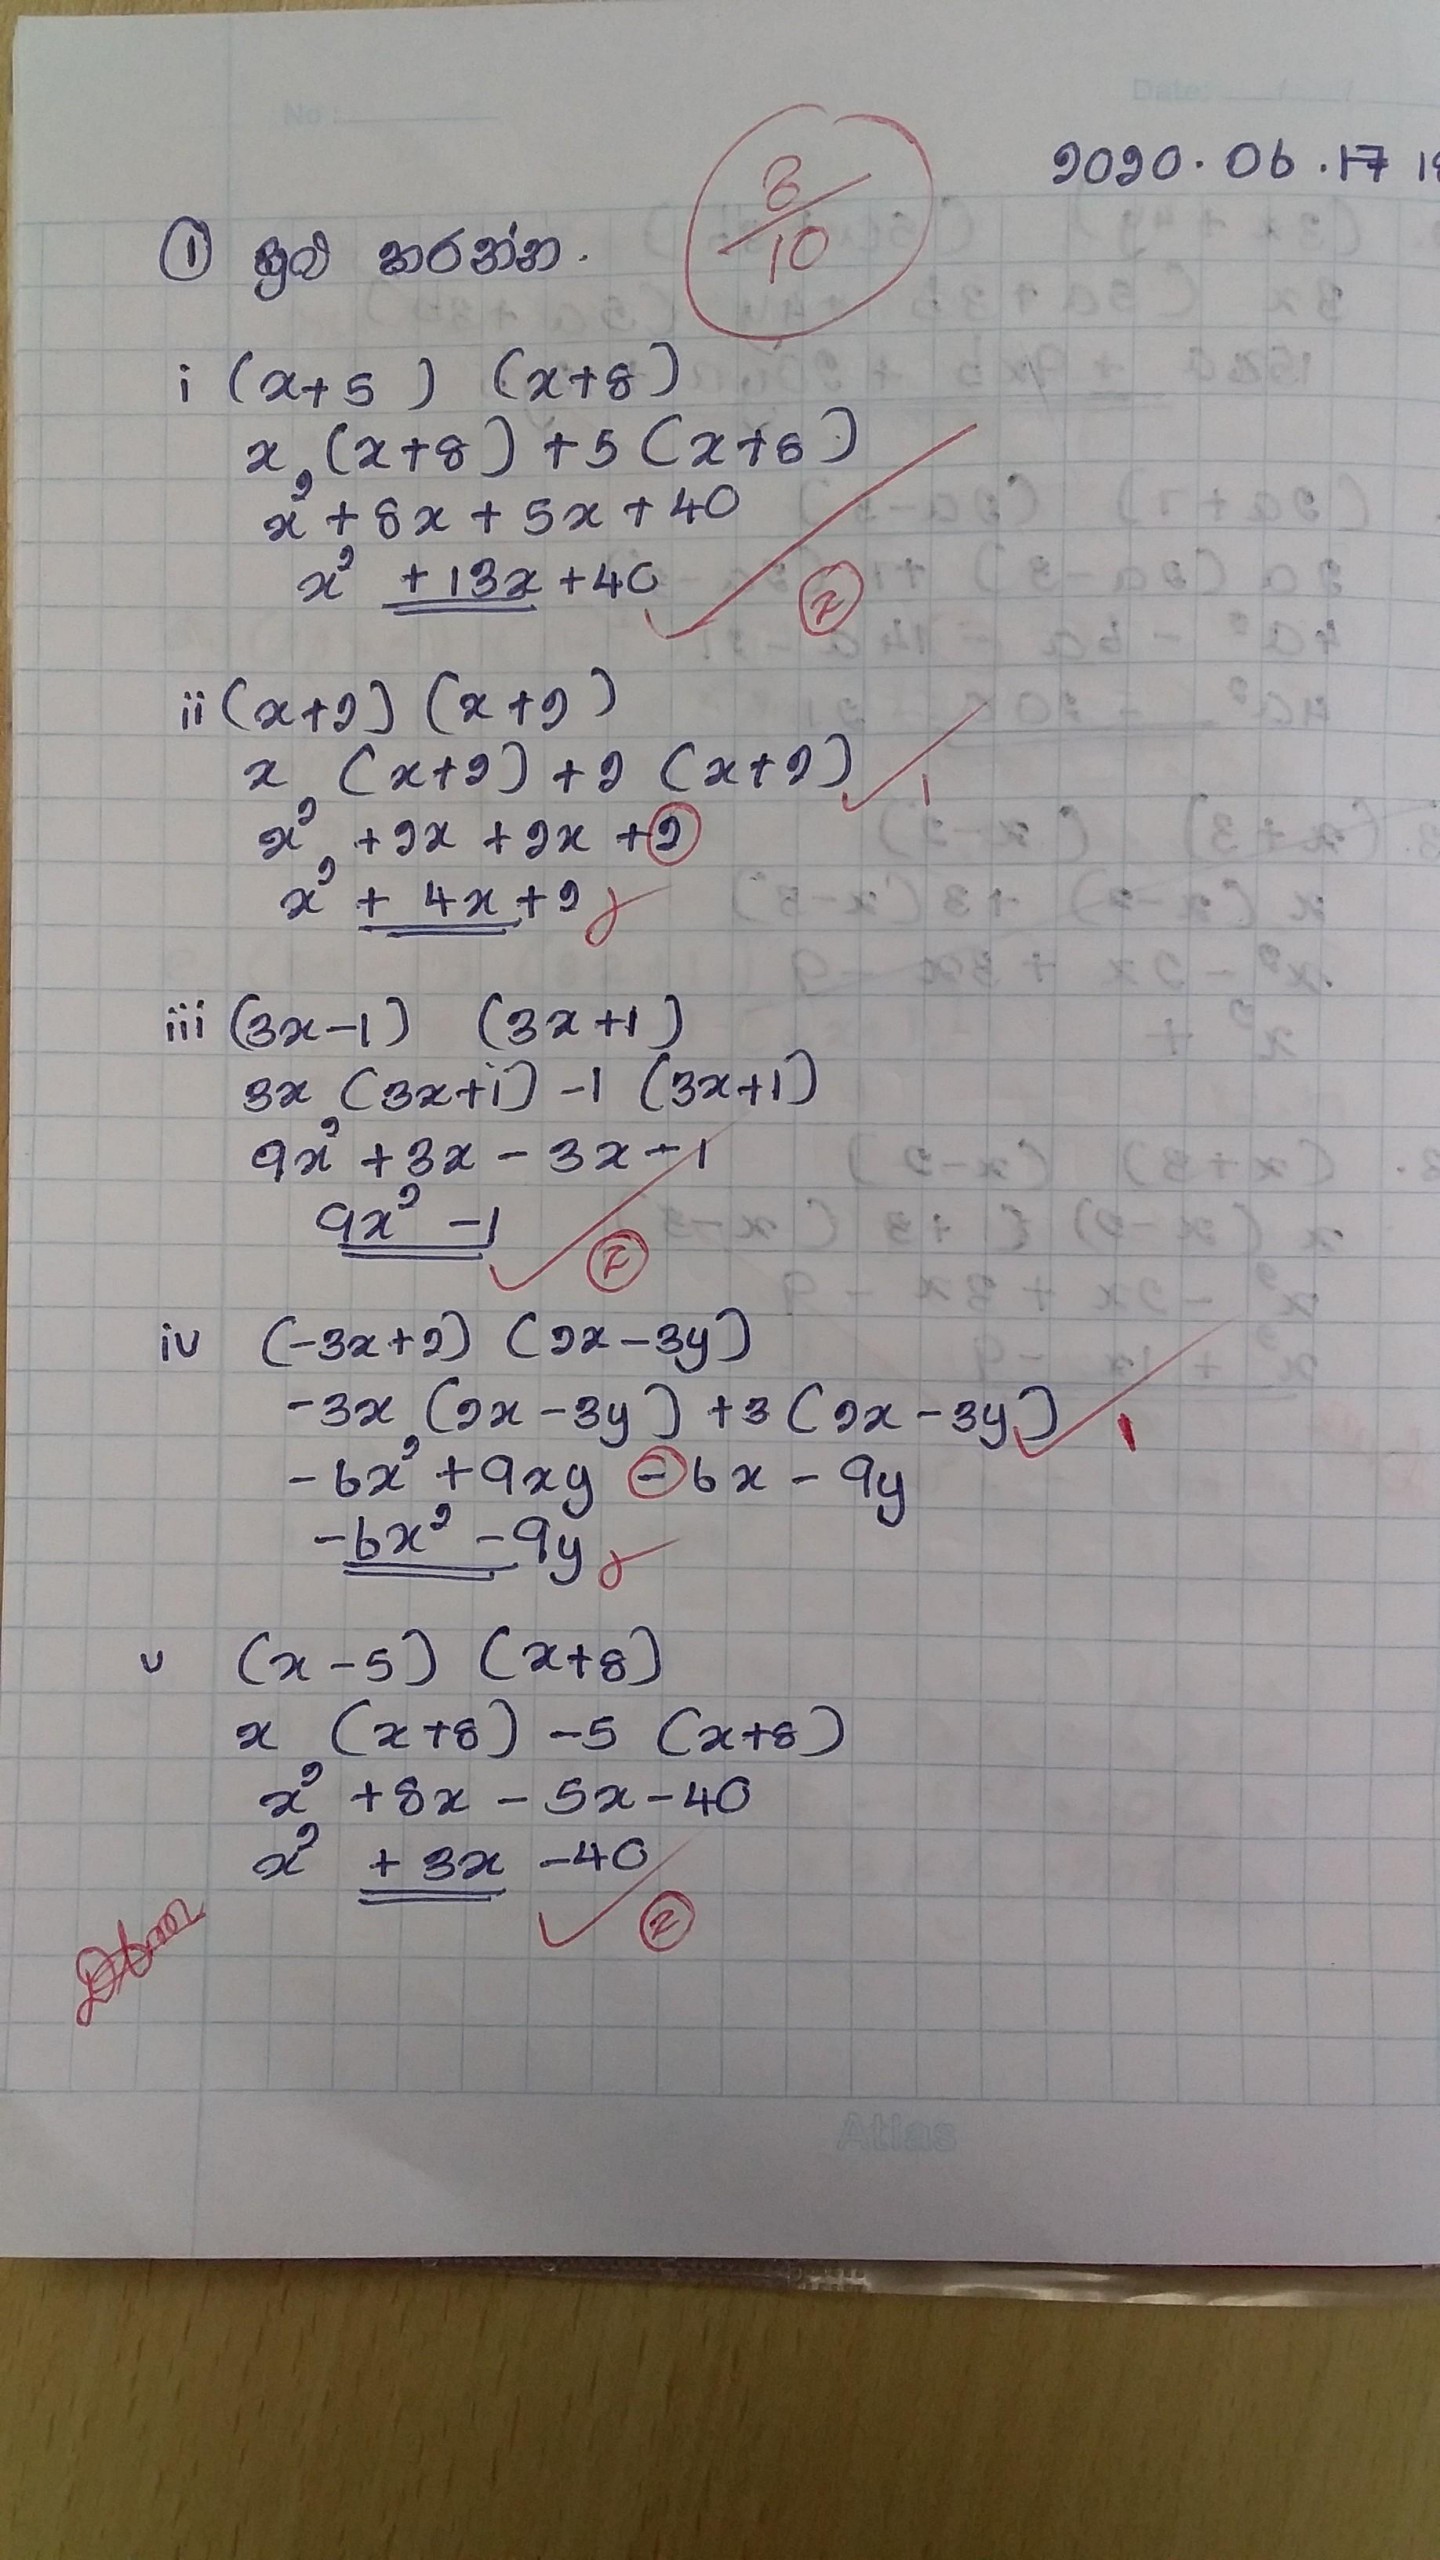 No :
Date:
2020.06.17
8/10
① සුළු කරන්න.
i (x+5) (x+8)
x (x+8) +5 (x+8)
x² + 8x + 5x + 40
x² + 13x + 40
②
ii (x+2) (x+2)
x (x+2) + 2 (x+2)
1
x² + 2x + 2x + 2
x² + 4x + 2
iii (3x-1) (3x+1)
3x (3x+1) -1 (3x+1)
9x² + 3x - 3x - 1
9x² - 1
②
iv (-3x+2) (2x-3y)
-3x (2x-3y) +3 (2x-3y)
1
-6x² + 9xy - 6x - 9y
-6x² - 9y
v (x-5) (x+8)
x (x+8) -5 (x+8)
x² + 8x - 5x - 40
x² + 3x - 40
②
Atlas